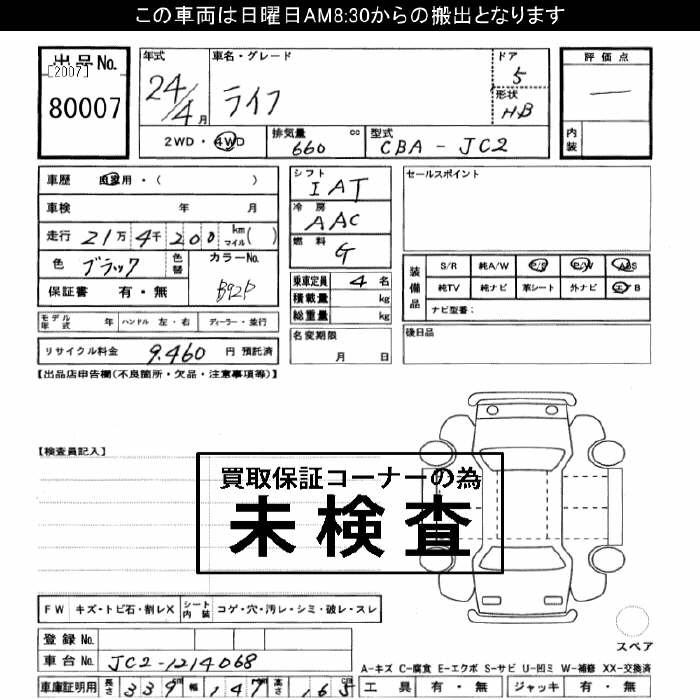 この車両は日曜日AM8:30からの搬出となります
出品No. [2007] 80007
年式 24/4月
車名・グレード ライフ
ドア 5
形状 HB
2WD・4WD
排気量 660 cc
型式 CBA-JC2
評価点 —
内装
車歴 自家用・( )
車検 年 月
走行 21万4千200 km マイル( )
色 ブラック 色替 カラーNo. B92P
保証書 有・無
モデル年式 年 ハンドル 左・右 ディーラー・並行
リサイクル料金 9,460 円 預託済
シフト IAT
冷房 AAC
燃料 G
乗車定員 4 名
積載量 kg
総重量 kg
名変期限 月 日
セールスポイント
装備品 S/R 純A/W P/S P/W ABS
純TV 純ナビ 革シート 外ナビ エアB
ナビ型番:
後日品
【出品店申告欄(不良箇所・欠品・注意事項等)】
【検査員記入】
買取保証コーナーの為
未検査
FW キズ・トビ石・割レX シート内装 コゲ・穴・汚レ・シミ・破レ・スレ
登録No.
車台No. JC2-1214068
スペア
A-キズ C-腐食 E-エクボ S-サビ U-凹ミ W-補修 XX-交換済
車庫証明用 長さ 339 幅 147 高さ 165
工具 有・無 ジャッキ 有・無